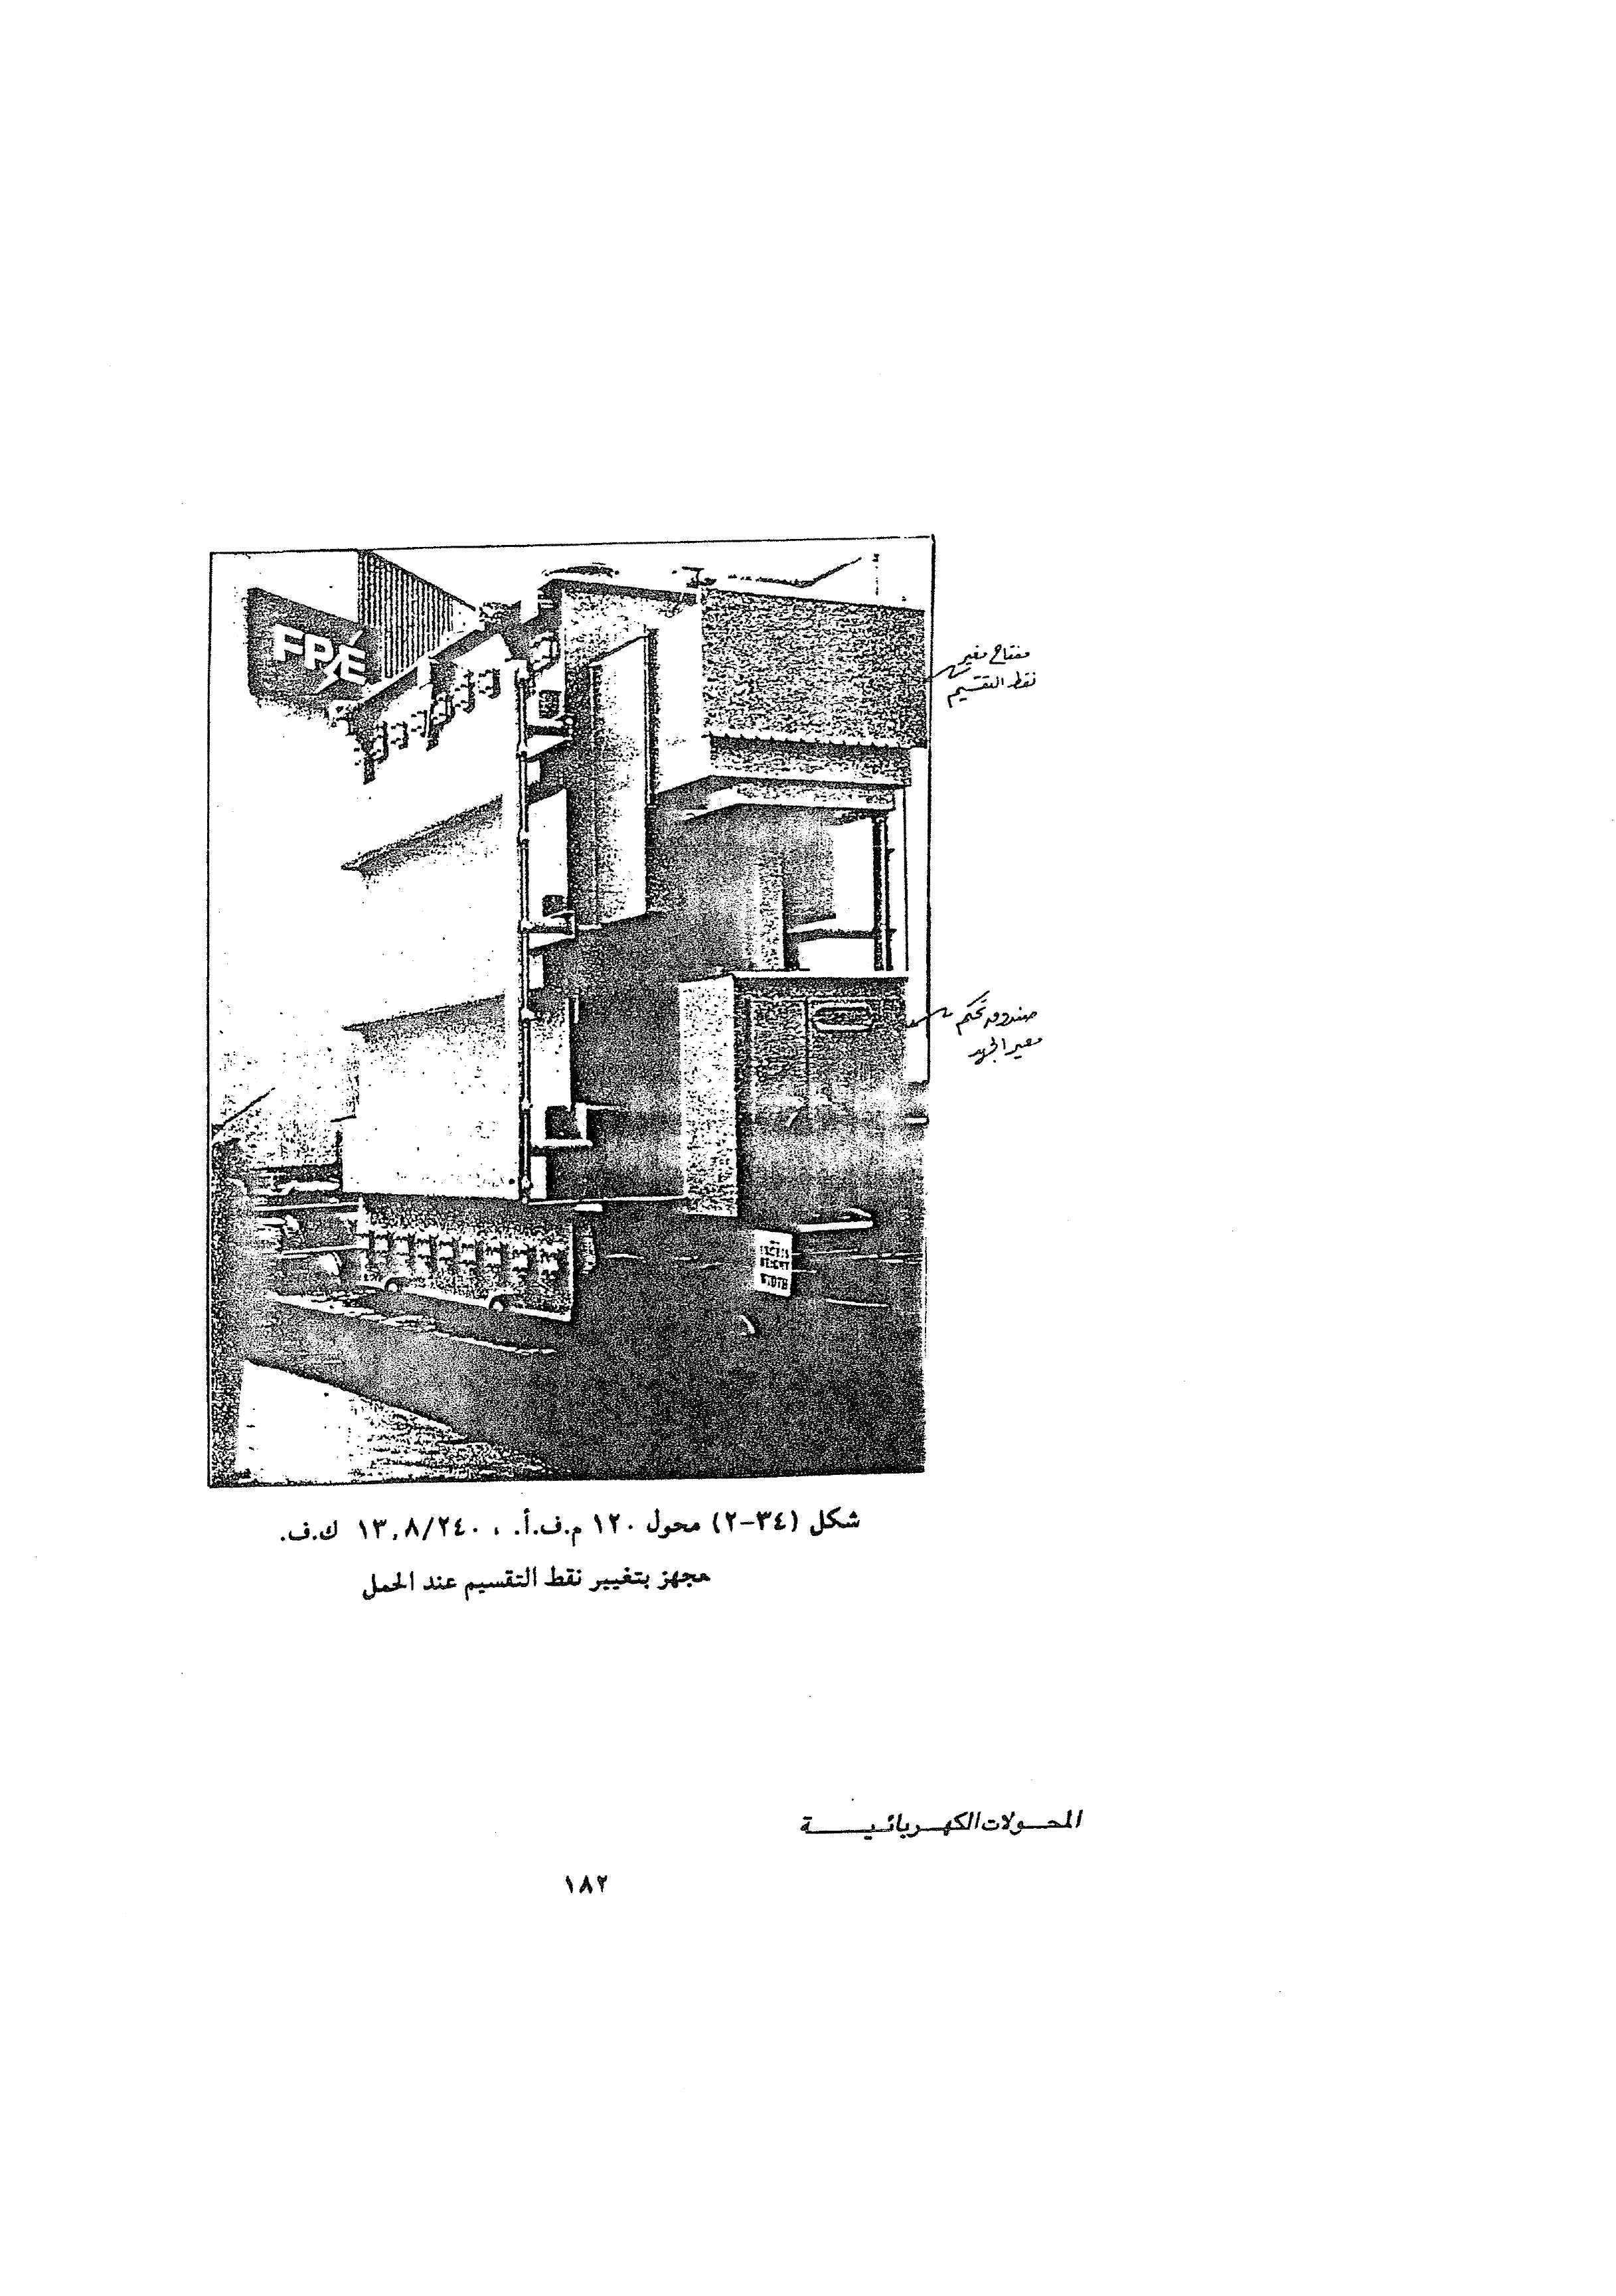 FPE
مفتاح مغير
نقط التقسيم
صندوق تحكم
مغير الجهد
EXCESS
HEIGHT
WIDTH
شكل (٣٤-٢) محول ١٢٠ م.ف.أ. ، ١٣,٨/٢٤٠ ك.ف.
مجهز بتغيير نقط التقسيم عند الحمل
المحـولات الكهـربائيـة
١٨٢